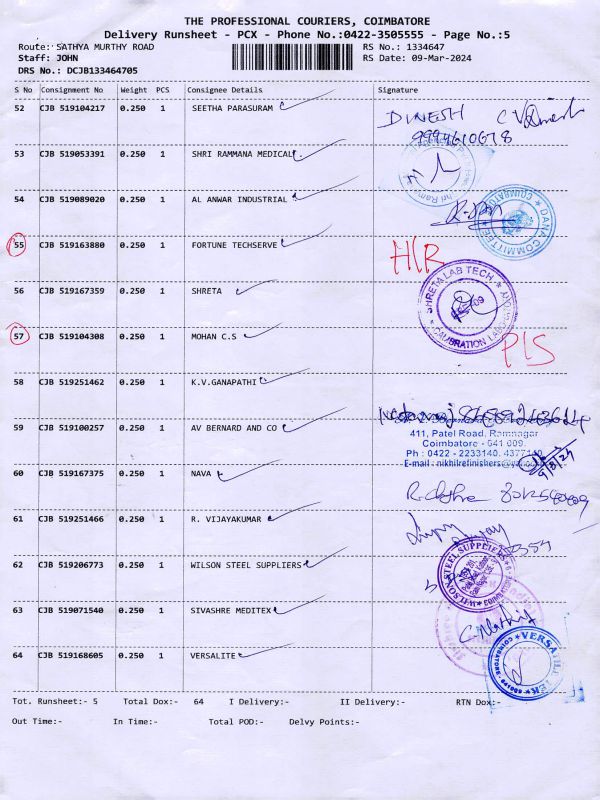 THE PROFESSIONAL COURIERS, COIMBATORE
Delivery Runsheet - PCX - Phone No.:0422-3505555 - Page No.:5
Route: SATHYA MURTHY ROAD RS No.: 1334647
Staff: JOHN RS Date: 09-Mar-2024
DRS No.: DCJB133464705
S No Consignment No Weight PCS Consignee Details Signature
52 CJB 519104217 0.250 1 SEETHA PARASURAM DINESH
9994610678
53 CJB 519053391 0.250 1 SHRI RAMMANA MEDICAL.
54 CJB 519089020 0.250 1 AL ANWAR INDUSTRIAL
COIMBATORE DANA COMMITTEE
55 CJB 519163880 0.250 1 FORTUNE TECHSERVE
56 CJB 519167359 0.250 1 SHRETA
SHRETA LAB TECH
57 CJB 519104308 0.250 1 MOHAN C.S
58 CJB 519251462 0.250 1 K.V.GANAPATHI
59 CJB 519100257 0.250 1 AV BERNARD AND CO
411, Patel Road, Ramnagar
Coimbatore - 641 009.
Ph : 0422 - 2233140,
60 CJB 519167375 0.250 1 NAVA
61 CJB 519251466 0.250 1 R. VIJAYAKUMAR
62 CJB 519206773 0.250 1 WILSON STEEL SUPPLIERS
WILSON STEEL SUPPLIERS
63 CJB 519071540 0.250 1 SIVASHRE MEDITEX
64 CJB 519168605 0.250 1 VERSALITE
Tot. Runsheet:- 5 Total Dox:- 64 I Delivery:- II Delivery:- RTN Dox:-
Out Time:- In Time:- Total POD:- Delvy Points:-